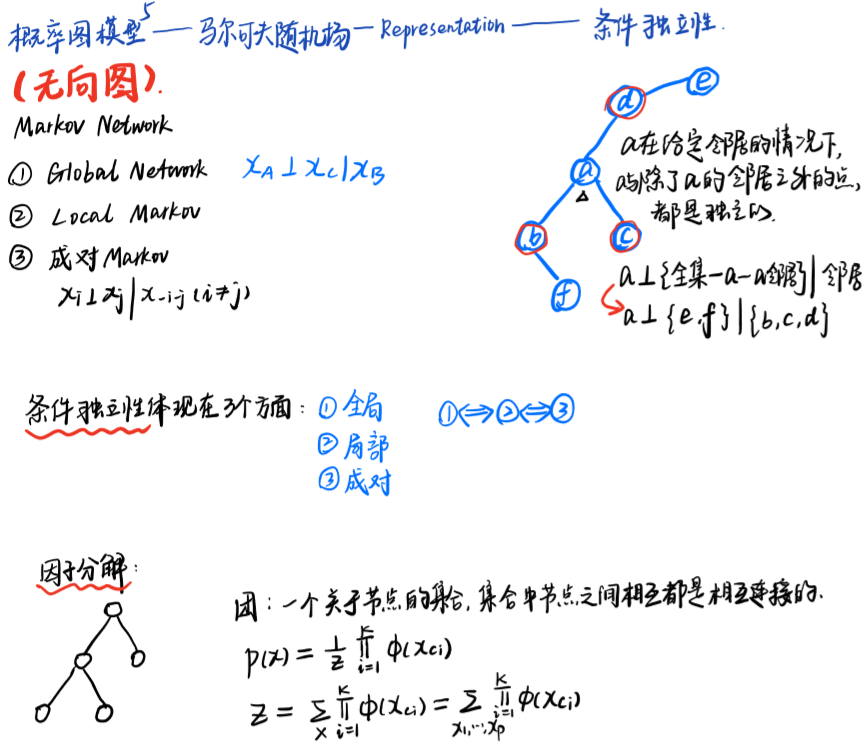 概率图模型5 — 马尔可夫随机场 — Representation — 条件独立性.
(无向图).
Markov Network
① Global Network x_A ⊥ x_C | x_B
② Local Markov
③ 成对 Markov
x_i ⊥ x_j | x_-i-j (i≠j)
e
d
a
b
c
f
a在给定邻居的情况下,
a与除了a的邻居之外的点,
都是独立的.
a ⊥ {全集-a-a邻居} | 邻居
a ⊥ {e,f} | {b,c,d}
条件独立性体现在3个方面: ① 全局 ①⇔②⇔③
② 局部
③ 成对
因子分解:
团: 一个关于节点的集合, 集合中节点之间相互都是相互连接的.
p(x) = 1/Z ∏_{i=1}^{K} φ(x_{ci})
Z = ∑_x ∏_{i=1}^{K} φ(x_{ci}) = ∑_{x_1,…,x_p} ∏_{i=1}^{K} φ(x_{ci})